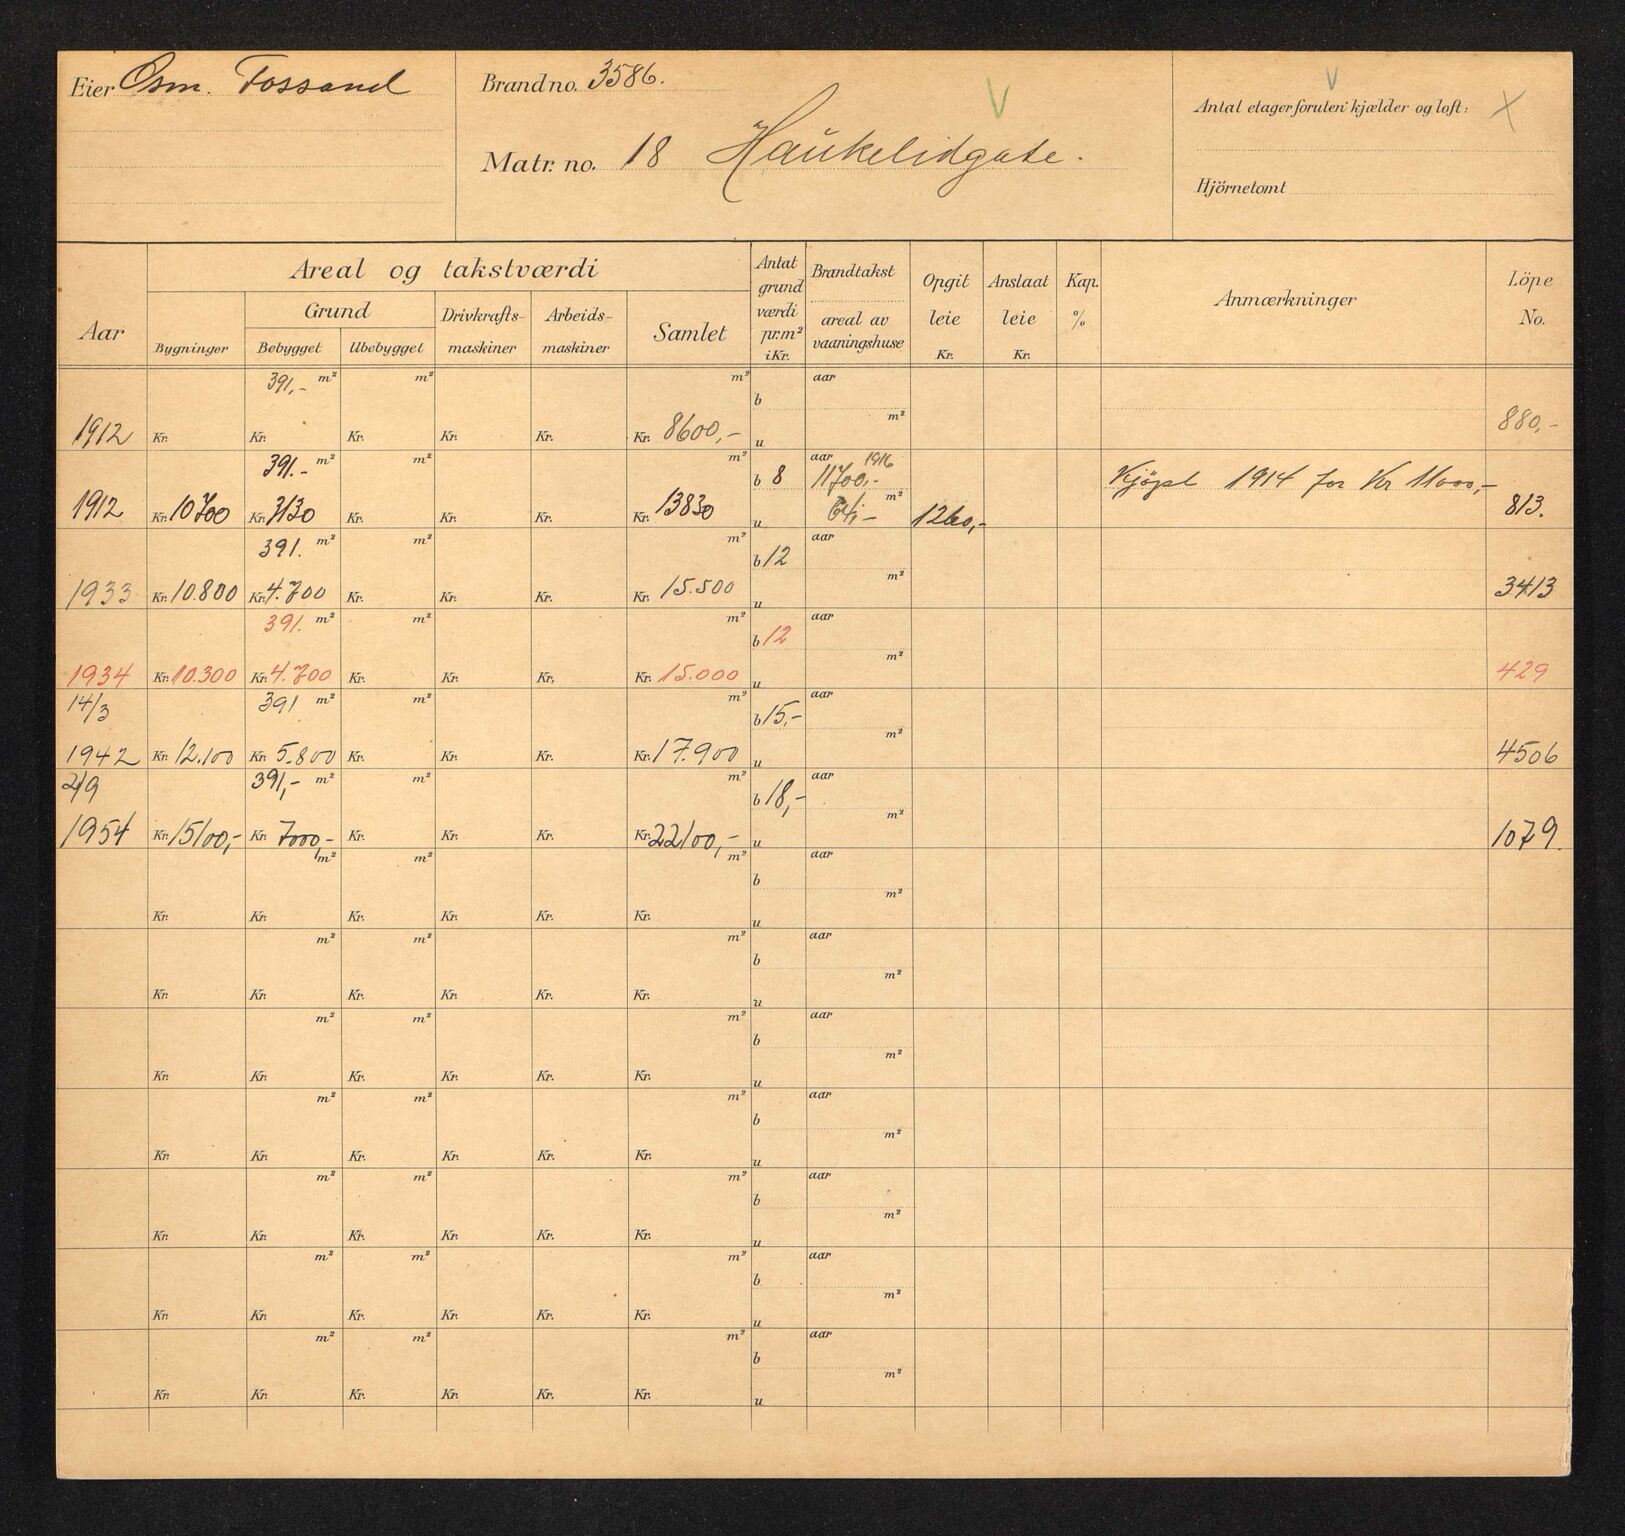 Eier Osm. Fossand
Brand no. 3586.
Matr. no. 18 Haukelidgate.
Antal etager foruten kjælder og loft:
Hjörnetomt
Aar
Areal og takstværdi
Grund
Bygninger
Bebygget
Ubebygget
Drivkrafts-
maskiner
Arbeids-
maskiner
Samlet
Antat
grund
værdi
pr.m²
i Kr.
Brandtakst
areal av
vaaningshuse
Opgit
leie
Kr.
Anslaat
leie
Kr.
Kap.
%
Anmærkninger
Löpe
No.
391,- m² m² m² b aar
1912 Kr. Kr. Kr. Kr. Kr. Kr. 8600,- u m² 880,-
391.- m² m² m² b 8 aar 1916 11700,- Kjöpt 1914 for Kr 11000,-
1912 Kr. 10700 Kr. 3130 Kr. Kr. Kr. Kr. 13830 u m² 1260,- 813.
391. m² m² m² b 12 aar
1933 Kr. 10.800 Kr. 4.700 Kr. Kr. Kr. Kr. 15.500 u m² 3413
391. m² m² m² b 12 aar
1934 Kr. 10.300 Kr. 4.700 Kr. Kr. Kr. Kr. 15.000 u m² 429
14/3 391 m² m² m² b 15,- aar
1942 Kr. 12.100 Kr. 5.800 Kr. Kr. Kr. Kr. 17.900 u m² 4506
2/9 391,- m² m² m² b 18,- aar
1954 Kr. 15100,- Kr. 7000,- Kr. Kr. Kr. Kr. 22100,- u m² 1079.
m² m² m² b aar
Kr. Kr. Kr. Kr. Kr. Kr. u m²
m² m² m² b aar
Kr. Kr. Kr. Kr. Kr. Kr. u m²
m² m² m² b aar
Kr. Kr. Kr. Kr. Kr. Kr. u m²
m² m² m² b aar
Kr. Kr. Kr. Kr. Kr. Kr. u m²
m² m² m² b aar
Kr. Kr. Kr. Kr. Kr. Kr. u m²
m² m² m² b aar
Kr. Kr. Kr. Kr. Kr. Kr. u m²
m² m² m² b aar
Kr. Kr. Kr. Kr. Kr. Kr. u m²